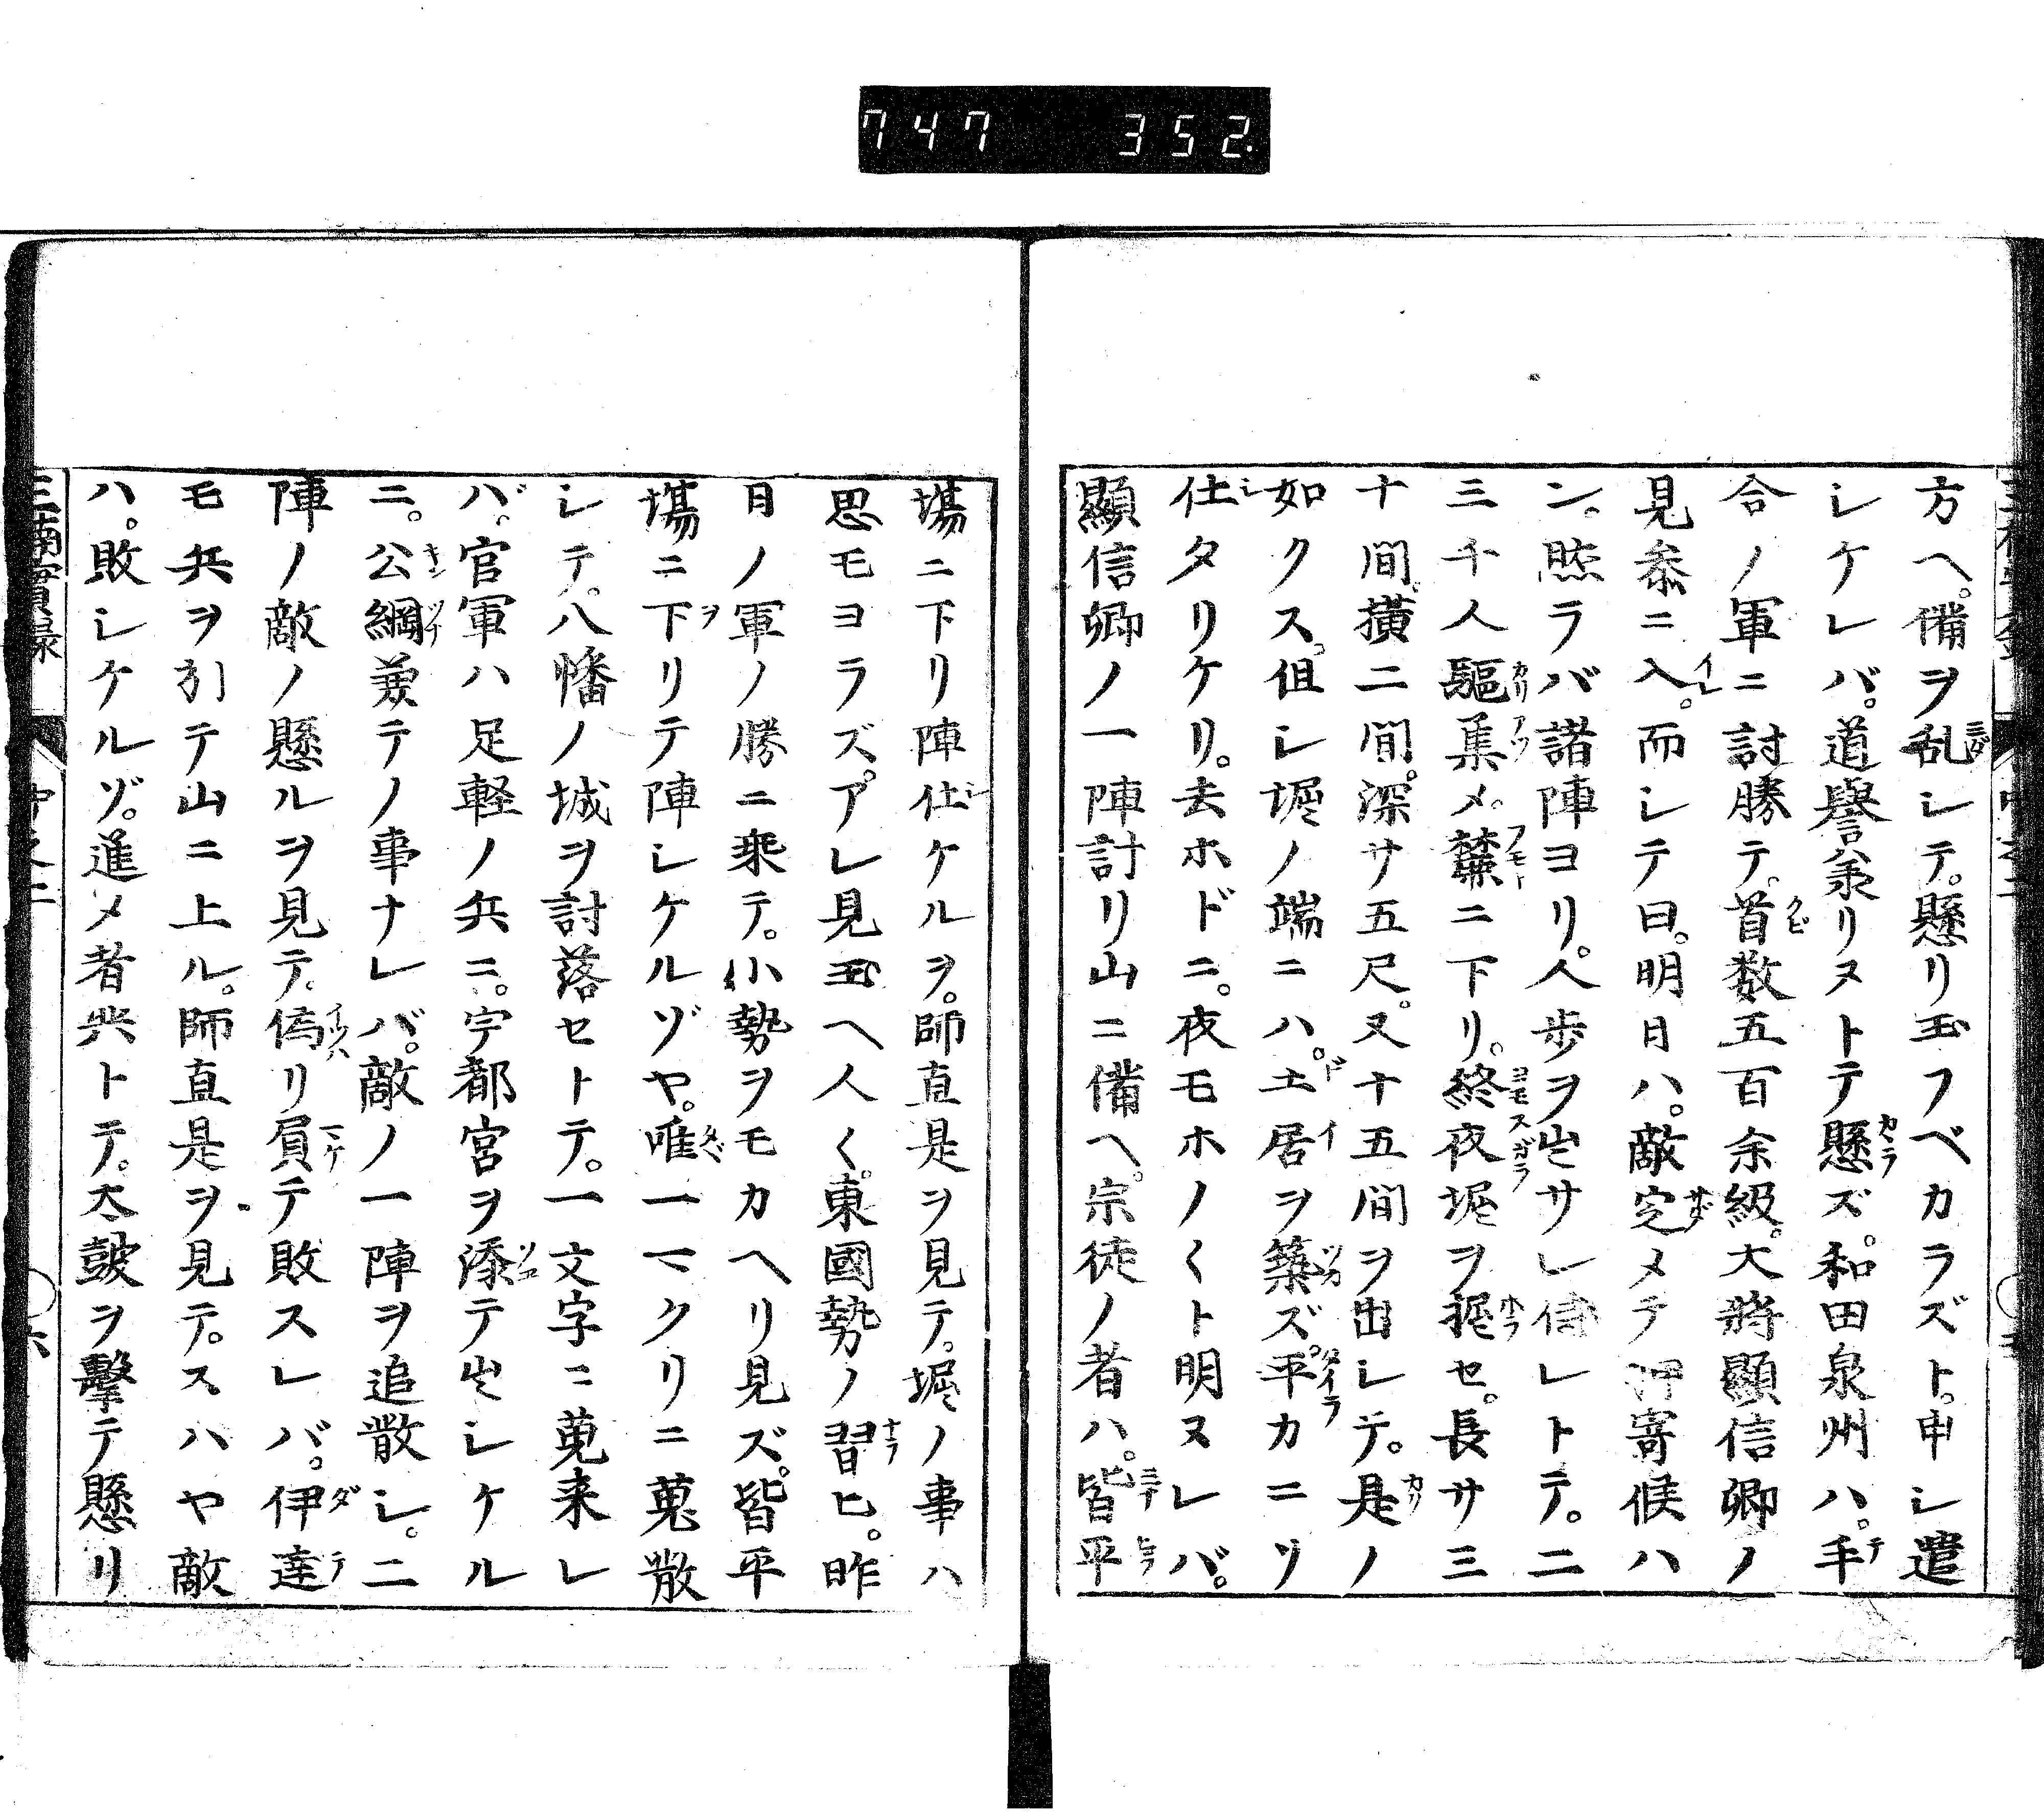 747 352.
方ヘ。備ヲ乱シテ。懸リ玉フベカラズト。申シ遣
シケレバ。道譽参リヌトテ懸ズ。和田泉州ハ。手
合ノ軍ニ討勝テ。首数五百余級。大將顯信卿ノ
見参ニ入。而シテ曰。明日ハ。敵定メテ押寄候ハ
ン。然ラバ諸陣ヨリ。人歩ヲ出サレ候レトテ。二
三千人駈集メ。麓ニ下リ。終夜堀ヲ掘セ。長サ三
十間。横二間。深サ五尺。又十五間ヲ出シテ。是ノ
如クス。但シ堀ノ端ニハ。土居ヲ築ズ。平カニソ
仕タリケリ。去ホドニ。夜モホノ〱ト明ヌレバ。
顯信卿ノ一陣討リ山ニ備ヘ。宗徒ノ者ハ。皆平
塲ニ下リ陣仕ケルヲ。師直是ヲ見テ。堀ノ事ハ
思モヨラズ。アレ見玉ヘ人〱。東國勢ノ習ヒ。昨
日ノ軍ノ勝ニ乘テ。小勢ヲモカヘリ見ズ。皆平
塲ニ下リテ陣シケルゾヤ。唯一マクリニ蒐散
シテ。八幡ノ城ヲ討落セトテ。一文字ニ蒐来レ
バ。官軍ハ足軽ノ兵ニ。宇都宮ヲ添テ出シケル
ニ。公綱兼テノ事ナレバ。敵ノ一陣ヲ追散シ。二
陣ノ敵ノ懸ルヲ見テ。偽リ負テ敗スレバ。伊達
モ兵ヲ引テ山ニ上ル。師直是ヲ見テ。スハヤ敵
ハ。敗シケルゾ。進メ者共トテ。太鼓ヲ擊テ懸リ